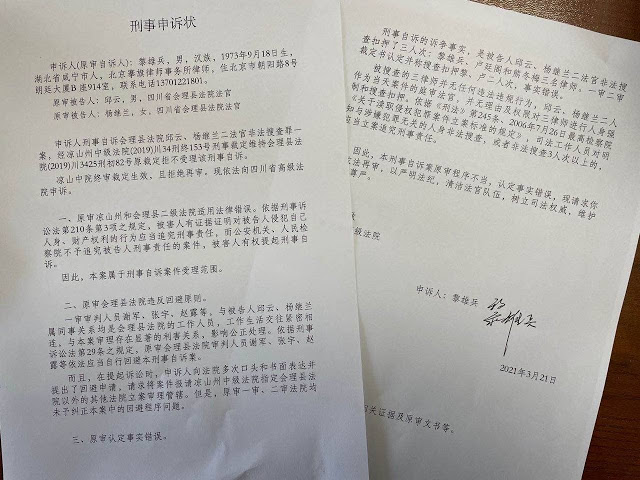 刑事申诉状
申诉人(原审自诉人)：黎雄兵，男，汉族，1973年9月18日生，
湖北省咸宁市人，北京襄族律师事务所律师，住北京市朝阳路8号
朗廷大厦B座914室，联系电话13701221801。
原审被告人：邱云，男，四川省会理县法院法官
原审被告人：杨继兰，女，四川省会理县法院法官
申诉人刑事自诉会理县法院邱云、杨继兰二法官非法搜查罪一
案，经凉山州中级法院(2019)川34刑终153号刑事裁定维持会理县法
院(2019)川3425刑初82号原裁定拒不受理该刑事自诉。
凉山中院终审裁定生效，且拒绝再审。现依法向四川省高级法
院申诉。
一、原审凉山州和会理县二级法院适用法律错误。依据刑事诉
讼法第210条第3项之规定，被害人有证据证明对被告人侵犯自己
人身、财产权利的行为应当追究刑事责任，而公安机关、人民检
察院不予追究被告人刑事责任的案件，被害人有权提起刑事自
诉。
因此，本案属于刑事自诉案件受理范围。
二、原审会理县法院违反回避原则。
一审审判人员谢军、张宇、赵露等，与被告人邱云、杨继兰
属同事关系均是会理县法院的工作人员，工作生活交往紧密相
连，与本案审理存在显著的利害关系，影响公正处理。依据刑事
诉讼法第29条之规定，原审会理县法院审判人员谢军、张宇、赵
露等依法应当自行回避本刑事自诉案。
而且，在提起诉讼时，申诉人向法院多次口头和书面表达并
提出了回避申请，请求将案件报请凉山州中级法院指定会理县法
院以外的其他法院立案审理管辖。但是，原审一审、二审法院均
未予纠正本案中的回避程序问题。
三、原审认定事实错误。
刑事自诉的诉争事实，是被告人邱云、杨继兰二法官非法搜
查扣押了三人次：黎雄兵、卢廷阁和熊冬梅三名律师。一审二审
裁定书认定并称搜查扣押黎、卢二人次，事实错误。
被搜查的三律师并无任何违法违规行为，邱云、杨继兰二人
作为当天案件的庭审法官，并无理由及权限对三律师进行人身强
制和搜查扣押。依据《刑法》第245条、2006年7月26日最高检察院
《关于渎职侵权犯罪案件立案标准的规定》，司法工作人员对明
知与涉嫌犯罪无关的人身非法搜查，或者非法搜查3人次以上的，
应当立案追究刑事责任。
因此，本刑事自诉案原审程序不当，认定事实错误，现请求你
法再审，以严明法纪，清洁法官队伍，树立司法权威，维护
尊严。
级法院
申诉人：黎雄兵
2021年3月21日
关证据及原审文书等。